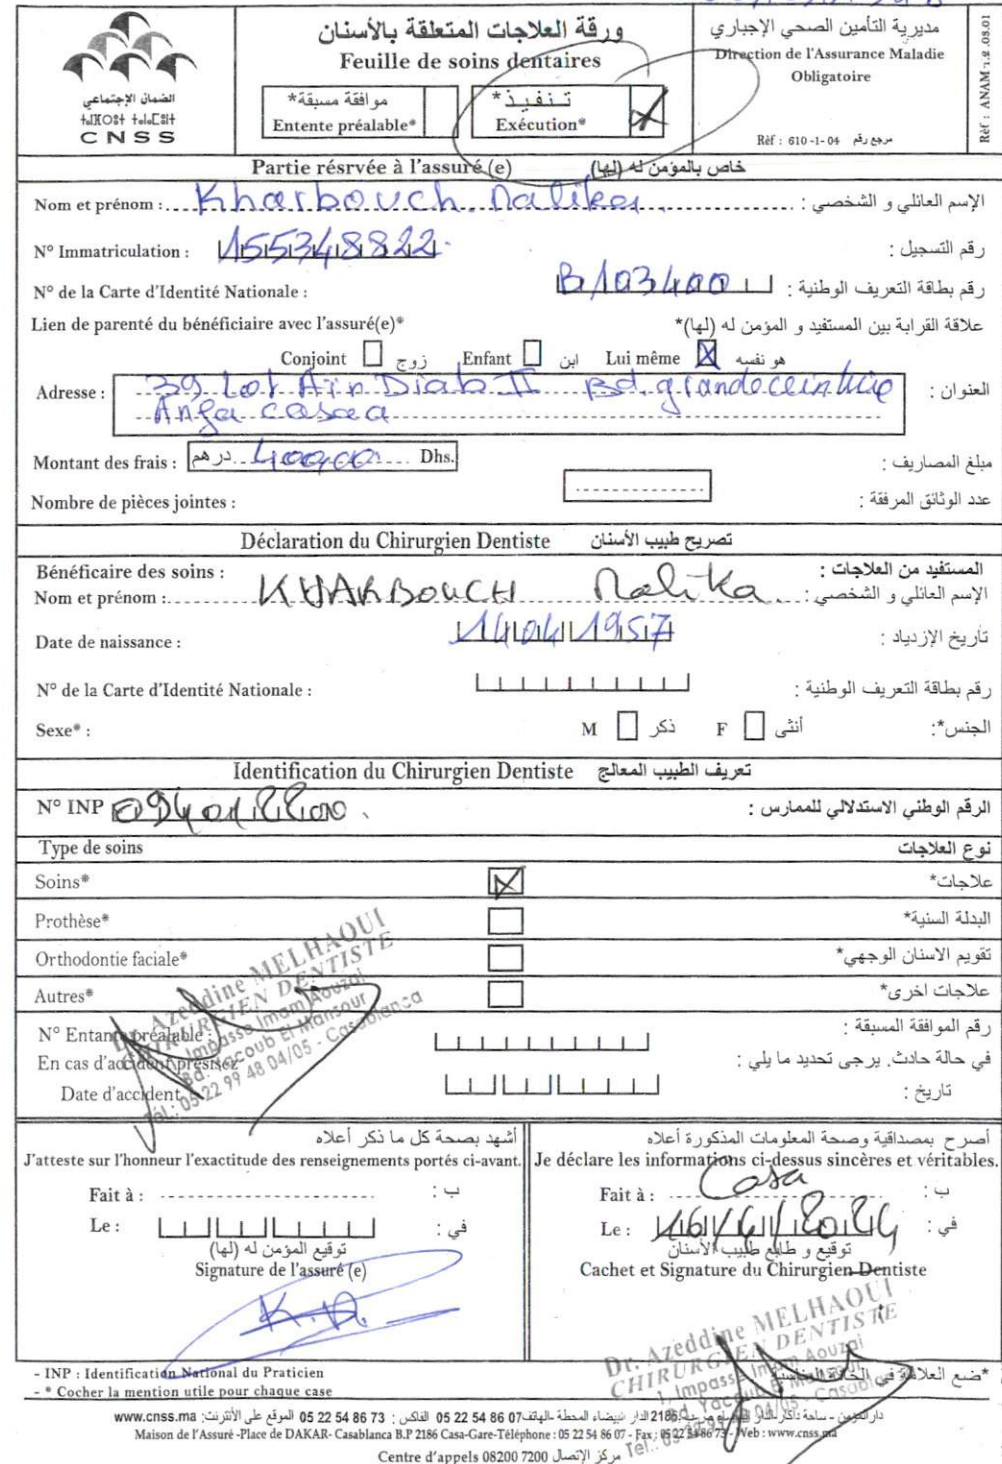 الضمان الإجتماعي
ⵜⴰⵏⴰⵎⵓⵏⵜ
CNSS
ورقة العلاجات المتعلقة بالأسنان
Feuille de soins dentaires
موافقة مسبقة*
Entente préalable*
تنفيذ*
Exécution*
مديرية التأمين الصحي الإجباري
Direction de l'Assurance Maladie
Obligatoire
Réf : 610-1-04 مرجع رقم
Partie résrvée à l'assuré (e) خاص بالمؤمن له (لها)
Nom et prénom : Kharbouch Malika الإسم العائلي و الشخصي :
N° Immatriculation : 155348822 رقم التسجيل :
N° de la Carte d'Identité Nationale : B103400 رقم بطاقة التعريف الوطنية :
Lien de parenté du bénéficiaire avec l'assuré(e)* علاقة القرابة بين المستفيد و المؤمن له (لها)*
Conjoint زوج Enfant ابن Lui même هو نفسه
Adresse : 39 Lot Ain Diab II Bd. grande ceinture العنوان :
Anfa casa
Montant des frais : درهم Dhs. مبلغ المصاريف :
Nombre de pièces jointes : عدد الوثائق المرفقة :
Déclaration du Chirurgien Dentiste تصريح طبيب الأسنان
Bénéficaire des soins : المستفيد من العلاجات :
Nom et prénom : KHARBOUCH Malika الإسم العائلي و الشخصي :
Date de naissance : 14041957 تاريخ الإزدياد :
N° de la Carte d'Identité Nationale : رقم بطاقة التعريف الوطنية :
Sexe* : M ذكر F أنثى الجنس*:
Identification du Chirurgien Dentiste تعريف الطبيب المعالج
N° INP الرقم الوطني الاستدلالي للممارس :
Type de soins نوع العلاجات
Soins* علاجات*
Prothèse* البدلة السنية*
Orthodontie faciale* تقويم الاسنان الوجهي*
Autres* علاجات اخرى*
N° Entante préalable : رقم الموافقة المسبقة :
En cas d'accident présisez في حالة حادث. يرجى تحديد ما يلي :
Date d'accident تاريخ :
Dr. Azeddine MELHAOUI
CHIRURGIEN DENTISTE
Impasse Imam Aouzai
Bd. Yacoub El Mansour
Tél.: 05 22 99 48 04/05 - Casablanca
أشهد بصحة كل ما ذكر أعلاه
J'atteste sur l'honneur l'exactitude des renseignements portés ci-avant.
Fait à : ب :
Le : في :
توقيع المؤمن له (لها)
Signature de l'assuré (e)
K.M.
أصرح بمصداقية وصحة المعلومات المذكورة أعلاه
Je déclare les informations ci-dessus sincères et véritables.
Fait à : Casa ب :
Le : 16/4/2024 في :
توقيع و طابع طبيب الأسنان
Cachet et Signature du Chirurgien Dentiste
Dr. Azeddine MELHAOUI
CHIRURGIEN DENTISTE
1, Impasse Imam Aouzai
- INP : Identification National du Praticien
- * Cocher la mention utile pour chaque case
Maison de l'Assuré -Place de DAKAR- Casablanca B.P 2186 Casa-Gare-Téléphone : 05 22 54 86 07 - Fax : 05 22 54 86 73 - Web : www.cnss.ma
Centre d'appels 08200 7200 مركز الإتصال
Réf : ANAM 1.2 .03.01